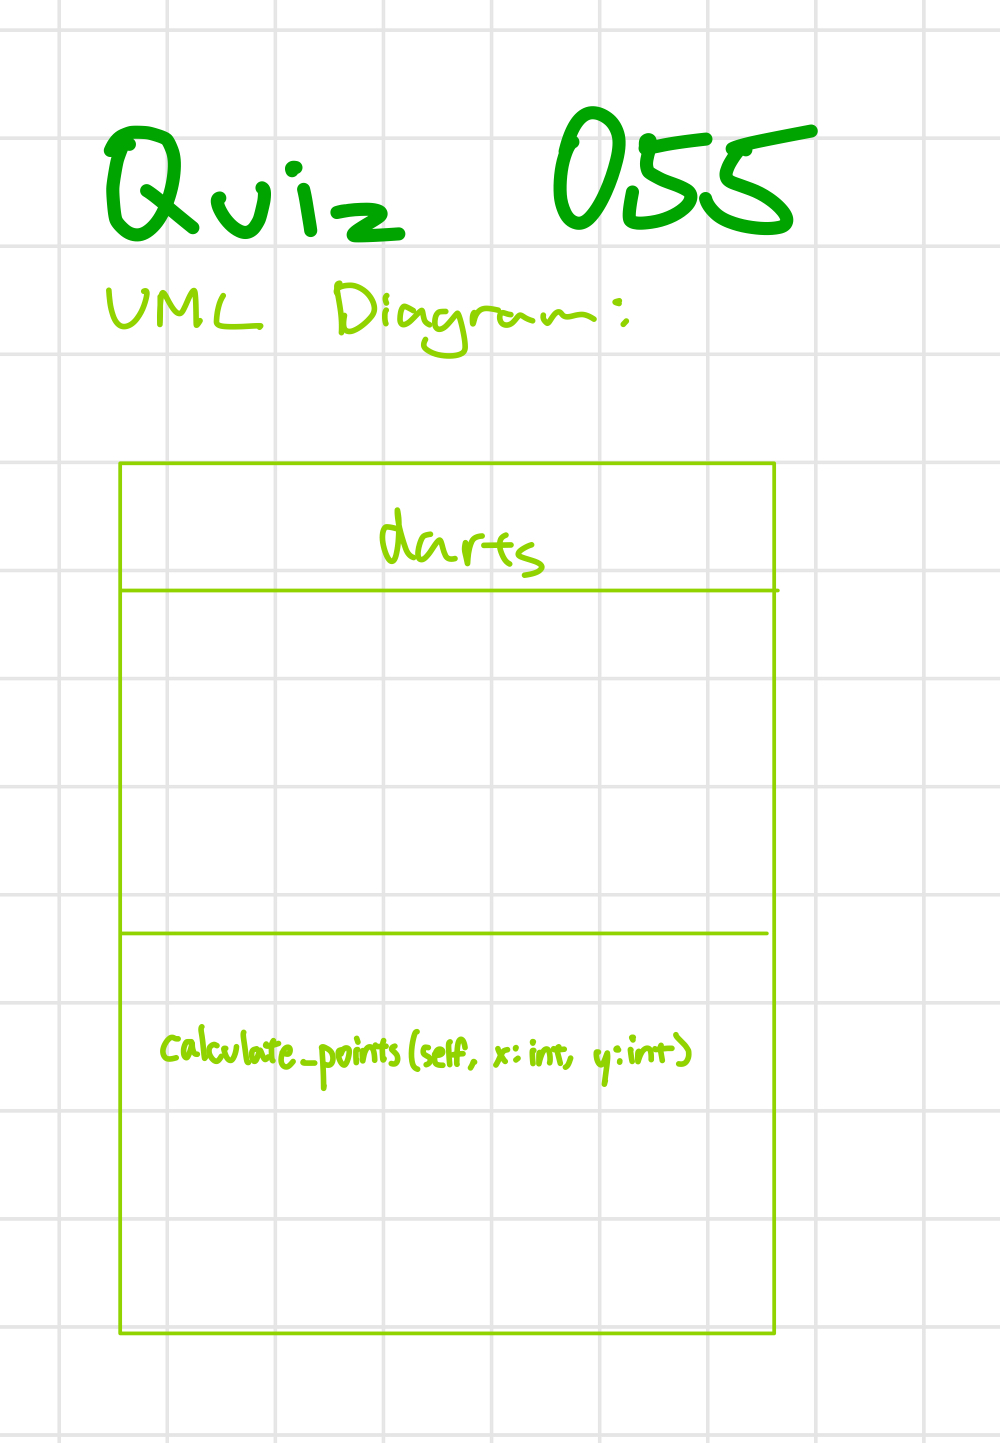 Quiz 055
UML Diagram:
darts
calculate_points(self, x:int, y:int)